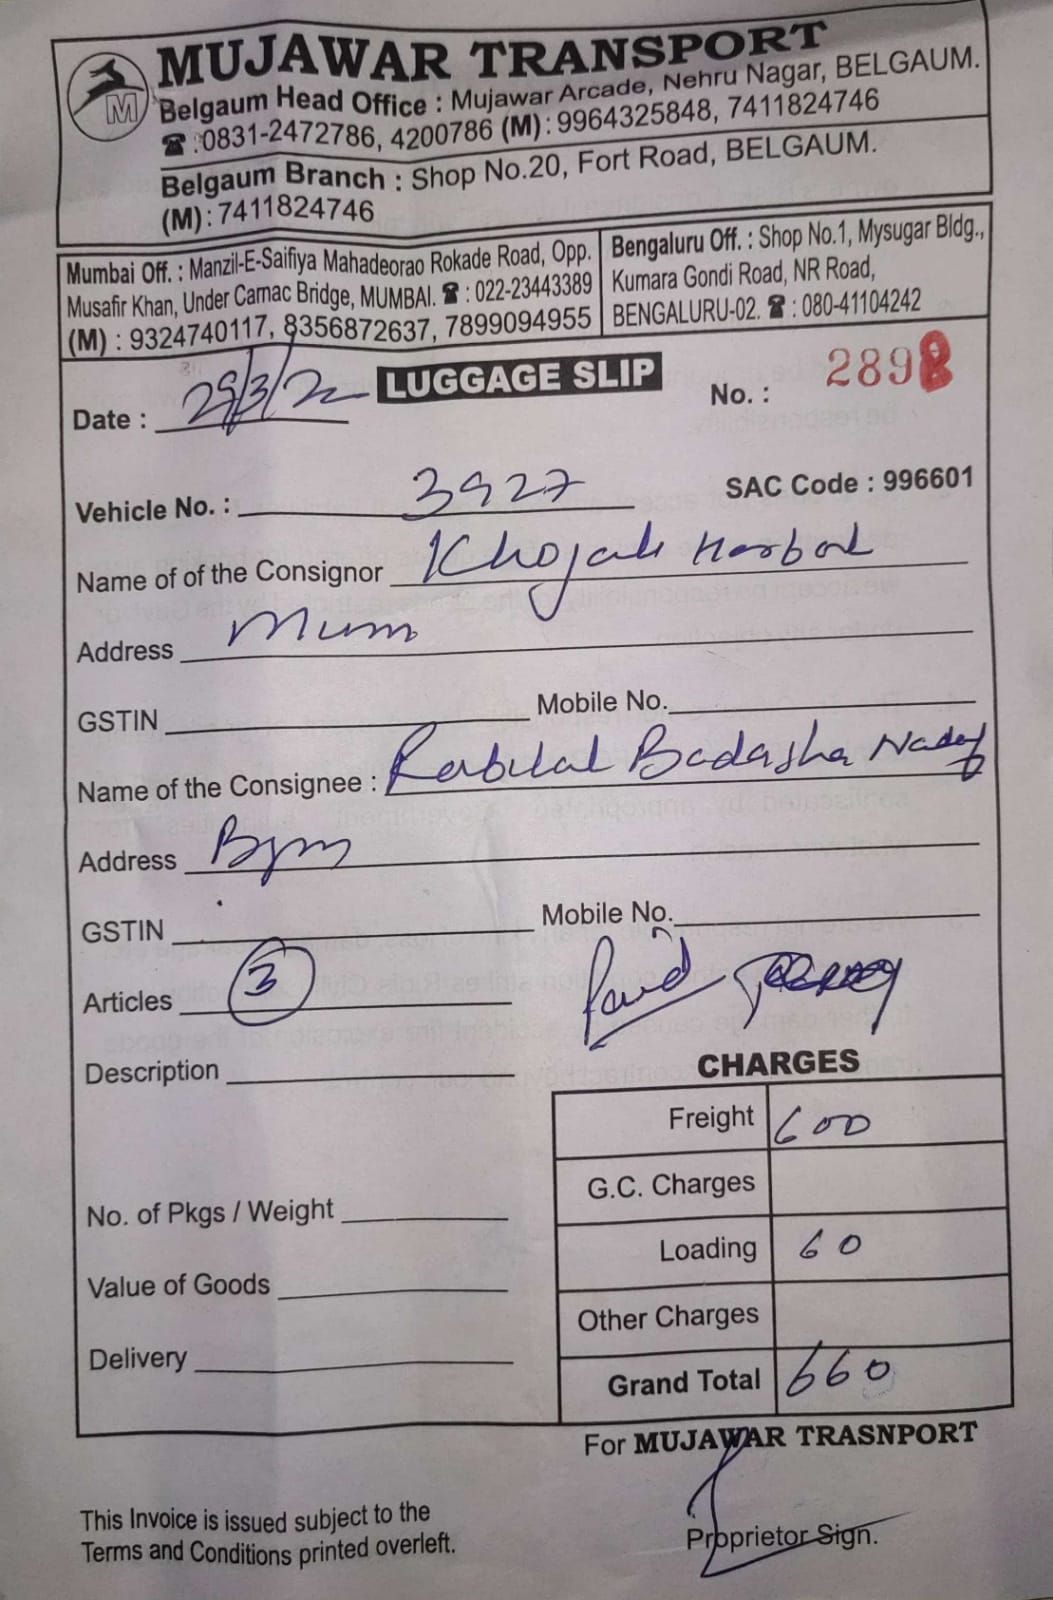 MUJAWAR TRANSPORT
M
Belgaum Head Office : Mujawar Arcade, Nehru Nagar, BELGAUM.
☎ :0831-2472786, 4200786 (M): 9964325848, 7411824746
Belgaum Branch : Shop No.20, Fort Road, BELGAUM.
(M): 7411824746
Mumbai Off. : Manzil-E-Saifiya Mahadeorao Rokade Road, Opp.
Musafir Khan, Under Carnac Bridge, MUMBAI. ☎ : 022-23443389
(M) : 9324740117, 8356872637, 7899094955
Bengaluru Off. : Shop No.1, Mysugar Bldg.,
Kumara Gondi Road, NR Road,
BENGALURU-02. ☎ : 080-41104242
LUGGAGE SLIP
No. : 2898
Date : 29/3/22
Vehicle No. : 3927
SAC Code : 996601
Name of of the Consignor Khojati Herbal
Address Mum
GSTIN Mobile No.
Name of the Consignee : Badasha Nadaf
Address Bgm
GSTIN Mobile No.
Articles 3
Paid
Description
CHARGES
Freight 600
G.C. Charges
No. of Pkgs / Weight
Loading 60
Value of Goods
Other Charges
Delivery
Grand Total 660
For MUJAWAR TRASNPORT
This Invoice is issued subject to the
Terms and Conditions printed overleft.
Proprietor Sign.